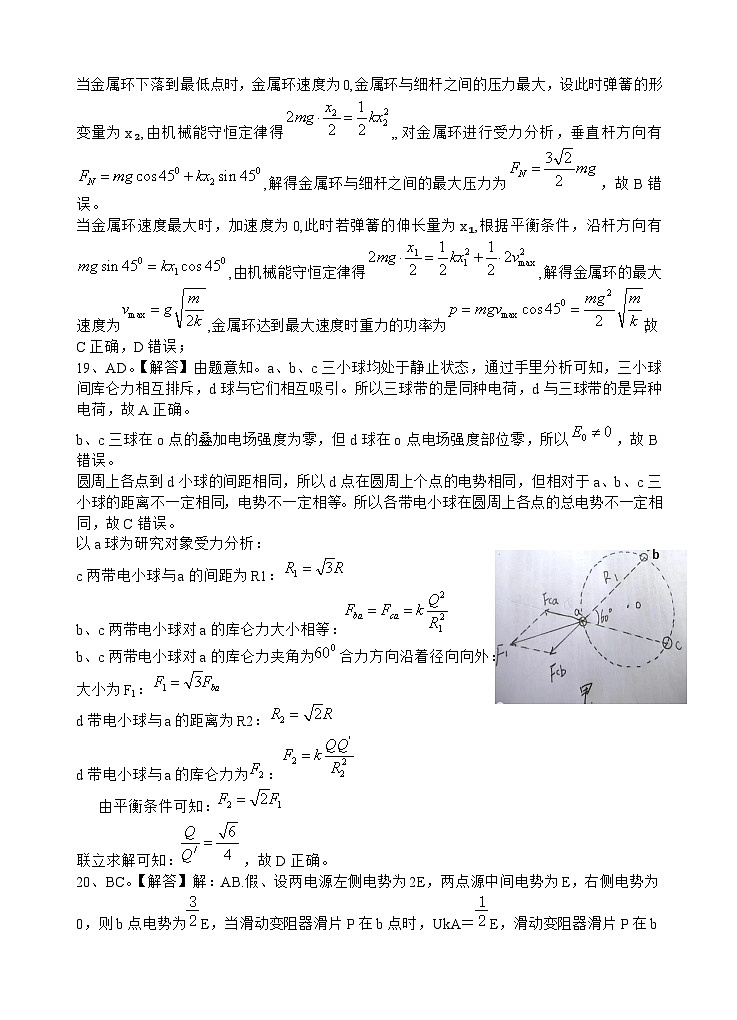 当金属环下落到最低点时，金属环速度为0,金属环与细杆之间的压力最大，设此时弹簧的形
变量为x₂,由机械能守恒定律得2mg·x₂/2=1/2kx₂²,,对金属环进行受力分析，垂直杆方向有
F_N=mg cos45⁰+kx₂ sin45⁰,解得金属环与细杆之间的最大压力为F_N=3√2/2mg，故B错
误。
当金属环速度最大时，加速度为0,此时若弹簧的伸长量为x₁,根据平衡条件，沿杆方向有
mg sin45⁰=kx₁cos45⁰,由机械能守恒定律得2mg·x₁/2=1/2kx₁²+1/2·2v²max,解得金属环的最大
速度为vmax=g√(m/2k),金属环达到最大速度时重力的功率为p=mgvmax cos45⁰=mg²/2√(m/k),故
C正确，D错误；
19、AD。【解答】由题意知。a、b、c三小球均处于静止状态，通过手里分析可知，三小球
间库仑力相互排斥，d球与它们相互吸引。所以三球带的是同种电荷，d与三球带的是异种
电荷，故A正确。
b、c三球在o点的叠加电场强度为零，但d球在o点电场强度部位零，所以E₀≠0，故B
错误。
圆周上各点到d小球的间距相同，所以d点在圆周上个点的电势相同，但相对于a、b、c三
小球的距离不一定相同，电势不一定相等。所以各带电小球在圆周上各点的总电势不一定相
同，故C错误。
以a球为研究对象受力分析：
c两带电小球与a的间距为R1：R₁=√3R
b、c两带电小球对a的库仑力大小相等：F_ba=F_ca=kQ²/R₁²
b、c两带电小球对a的库仑力夹角为60⁰合力方向沿着径向向外：
大小为F₁：F₁=√3F_ba
d带电小球与a的距离为R2：R₂=√2R
d带电小球与a的库仑力为F₂：F₂=kQQ'/R₂²
由平衡条件可知：F₂=√2F₁
联立求解可知：Q/Q'=√6/4，故D正确。
b
R₁
Fca
a
60°
O
F₁
c
Fcb
甲
20、BC。【解答】解：AB.假、设两电源左侧电势为2E，两点源中间电势为E，右侧电势为
0，则b点电势为3/2E，当滑动变阻器滑片P在b点时，UkA＝1/2E，滑动变阻器滑片P在b